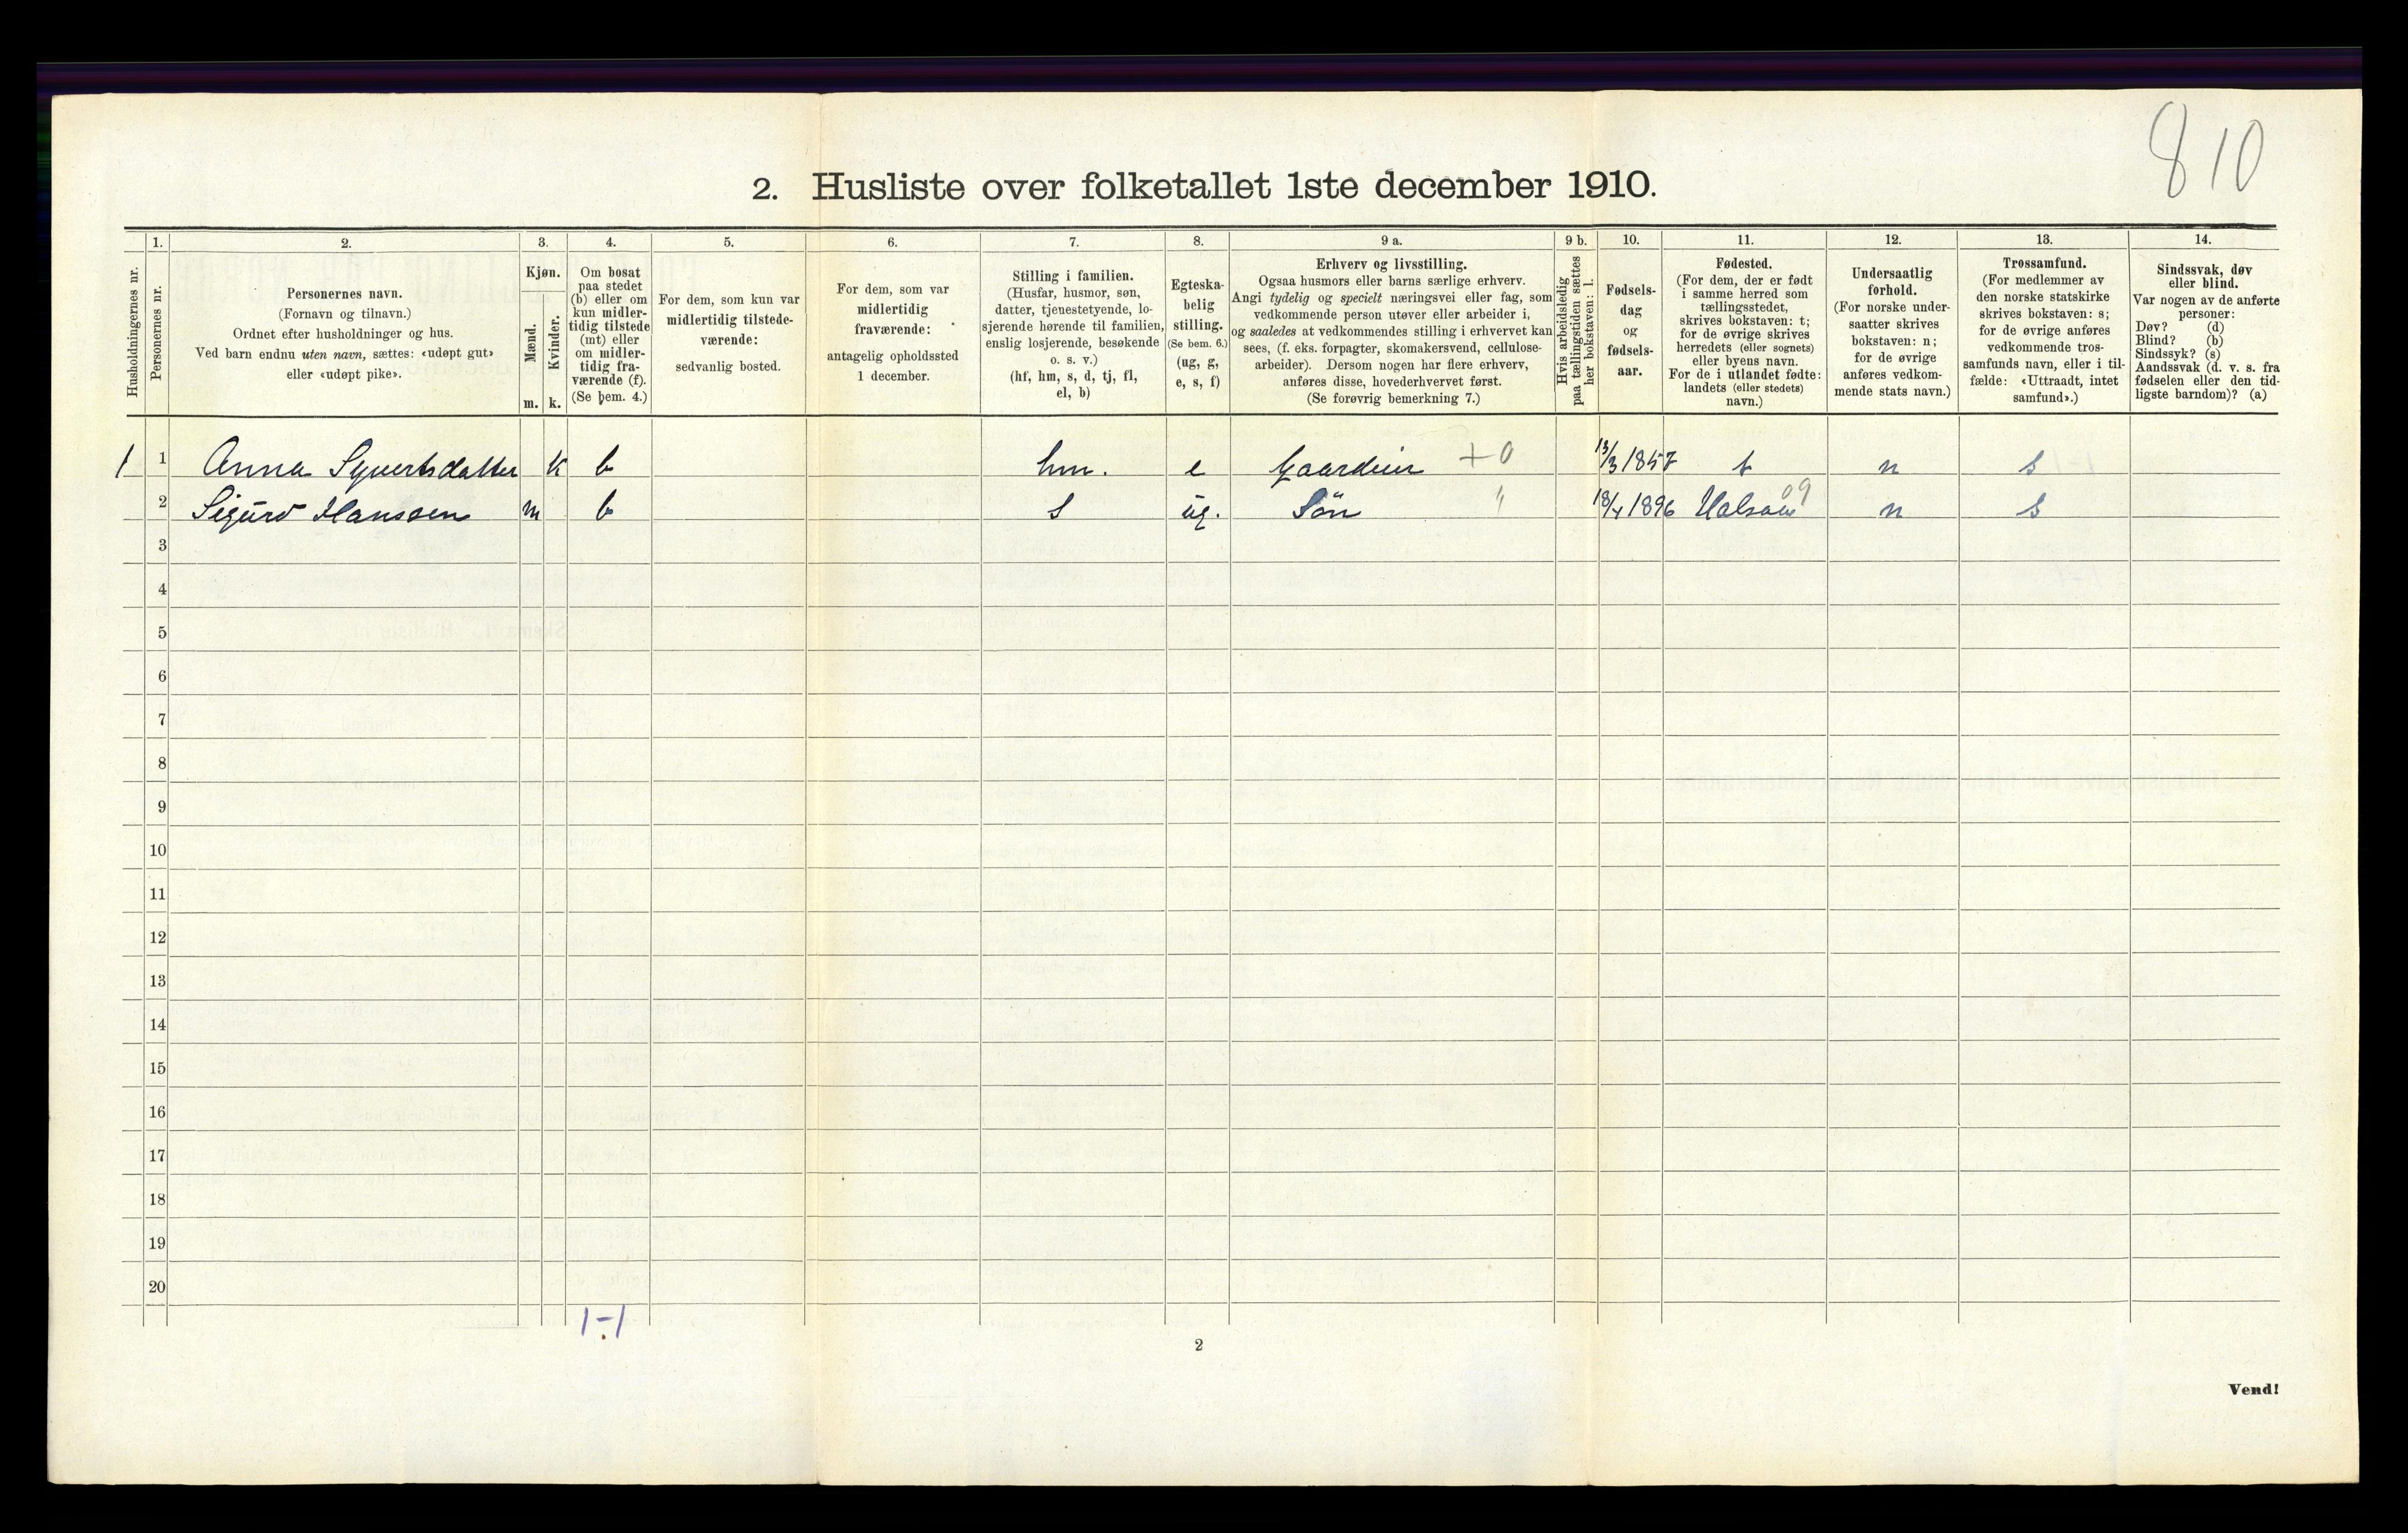 810
2. Husliste over folketallet 1ste december 1910.
Husholdningernes nr.
1.
Personernes nr.
2.
Personernes navn.
(Fornavn og tilnavn.)
Ordnet efter husholdninger og hus.
Ved barn endnu uten navn, sættes: «udøpt gut»
eller «udøpt pike».
3.
Kjøn.
Mænd.
Kvinder.
m. k.
4.
Om bosat
paa stedet
(b) eller om
kun midler-
tidig tilstede
(mt) eller
om midler-
tidig fra-
værende (f).
(Se bem. 4.)
5.
For dem, som kun var
midlertidig tilstede-
værende:
sedvanlig bosted.
6.
For dem, som var
midlertidig
fraværende:
antagelig opholdssted
1 december.
7.
Stilling i familien.
(Husfar, husmor, søn,
datter, tjenestetyende, lo-
sjerende hørende til familien,
enslig losjerende, besøkende
o. s. v.)
(hf, hm, s, d, tj, fl,
el, b)
8.
Egteska-
belig
stilling.
(Se bem. 6.)
(ug, g,
e, s, f)
9 a.
Erhverv og livsstilling.
Ogsaa husmors eller barns særlige erhverv.
Angi tydelig og specielt næringsvei eller fag, som
vedkommende person utøver eller arbeider i,
og saaledes at vedkommendes stilling i erhvervet kan
sees, (f. eks. forpagter, skomakersvend, cellulose-
arbeider). Dersom nogen har flere erhverv,
anføres disse, hovederhvervet først.
(Se forøvrig bemerkning 7.)
9 b.
Hvis arbeidsledig
paa tællingstiden sættes
her bokstaven: l.
10.
Fødsels-
dag
og
fødsels-
aar.
11.
Fødested.
(For dem, der er født
i samme herred som
tællingsstedet,
skrives bokstaven: t;
for de øvrige skrives
herredets (eller sognets)
eller byens navn.
For de i utlandet fødte:
landets (eller stedets)
navn.)
12.
Undersaatlig
forhold.
(For norske under-
saatter skrives
bokstaven: n;
for de øvrige
anføres vedkom-
mende stats navn.)
13.
Trossamfund.
(For medlemmer av
den norske statskirke
skrives bokstaven: s;
for de øvrige anføres
vedkommende tros-
samfunds navn, eller i til-
fælde: «Uttraadt, intet
samfund».)
14.
Sindssvak, døv
eller blind.
Var nogen av de anførte
personer:
Døv? (d)
Blind? (b)
Sindssyk? (s)
Aandssvak (d. v. s. fra
fødselen eller den tid-
ligste barndom)? (a)
1 1 Anna Syvertsdatter k b hm. e Gaardeier +0 13/3 1857 t n s
2 Sigurd Hanssen m b s ug. Sön " 18/4 1896 09 n s
3
4
5
6
7
8
9
10
11
12
13
14
15
16
17
18
19
20
1-1
2
Vend!